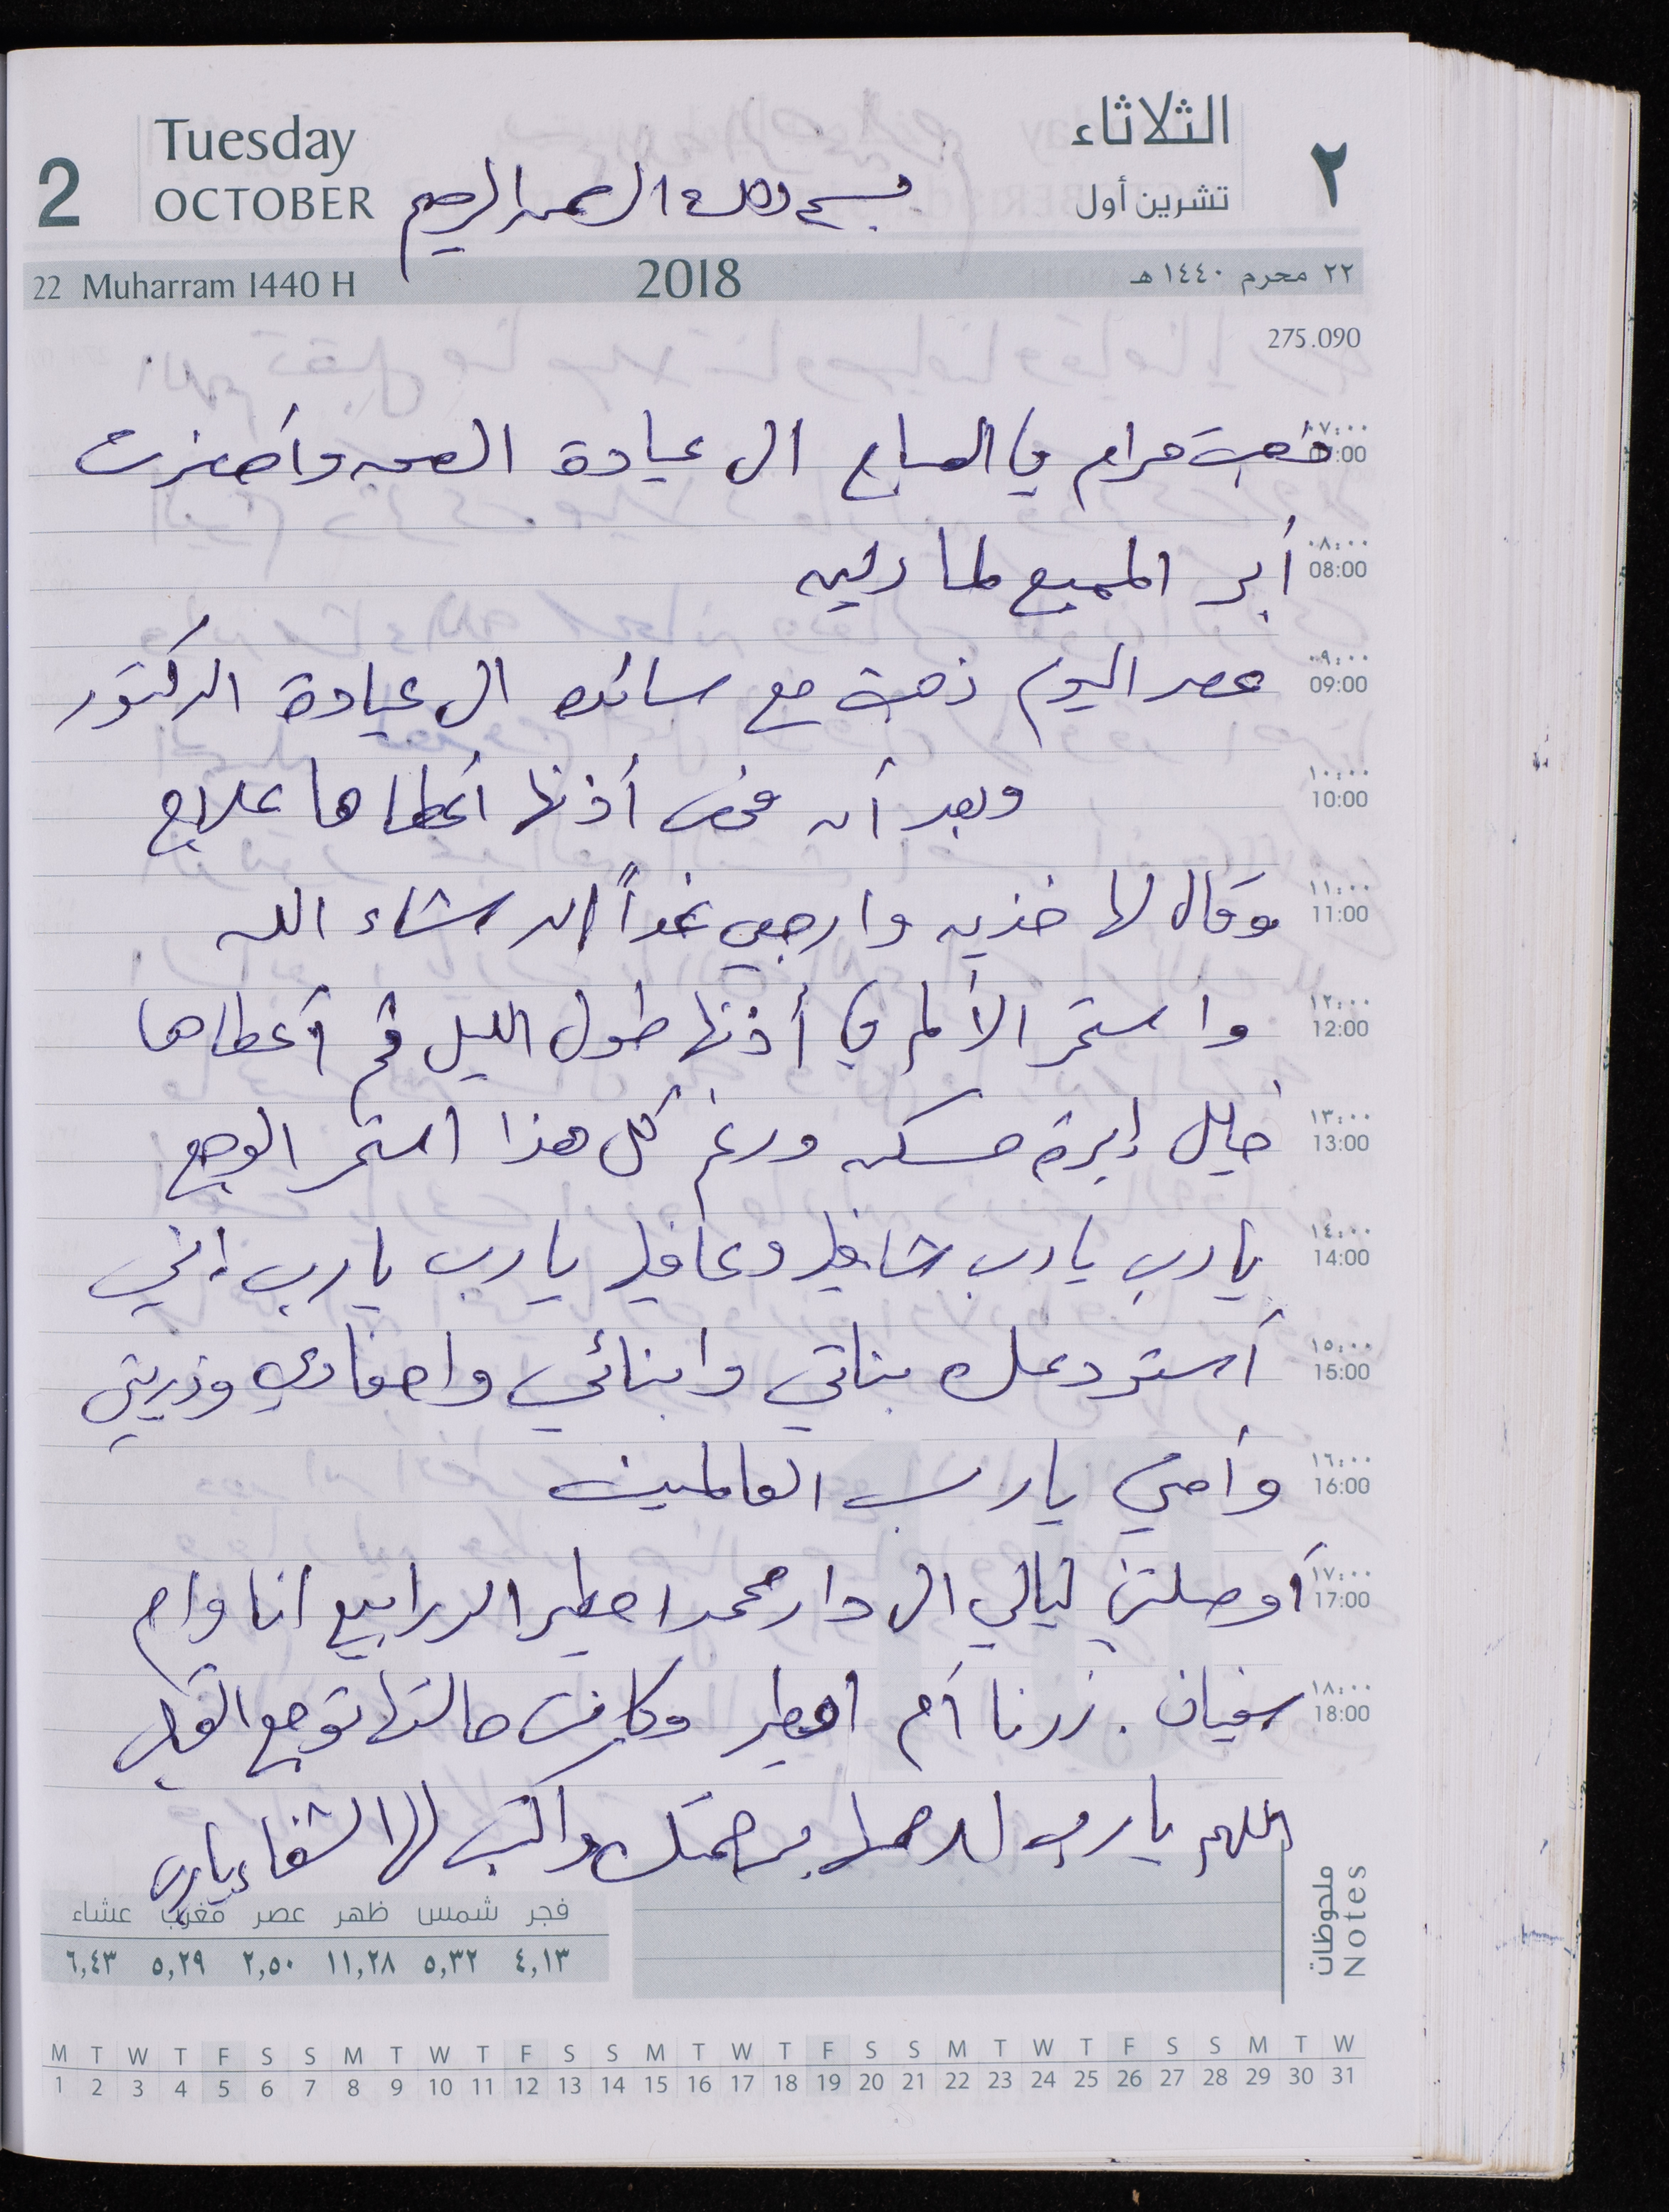 الثلاثاء
٢
تشرين أول
Tuesday
2
OCTOBER
بسم الله الرحمن الرحيم
22 Muharram 1440 H
2018
٢٢ محرم ١٤٤٠ هـ
275.090
٠٧:٠٠
07:00
ذهبت مرام في الصباح الى عيادة الصحه وأحضرت
٠٨:٠٠
08:00
أبر المميع لمارلين
٠٩:٠٠
09:00
عصر اليوم ذهبت مع سائده الى عيادة الدكتور
١٠:٠٠
10:00
وبعد أن فحص أذنها أعطاها علاج
١١:٠٠
11:00
وقال لها خذيه وارجعي غداً ان شاء الله
١٢:٠٠
12:00
واستمر الألم في أذنها طول الليل ثم أعطاها
١٣:٠٠
13:00
خليل إبرة مسكنه ورغم كل هذا استمر الوجع
١٤:٠٠
14:00
يارب يارب شافيها وعافيها يارب يارب اني
١٥:٠٠
15:00
أستودعك بناتي وابنائي واحفادي وذريتي
١٦:٠٠
16:00
وأمي يارب العالمين
١٧:٠٠
17:00
أوصلتني ليالي الى دار محمد امطير الدرابيع انا وام
١٨:٠٠
18:00
سفيان . زرنا أم امطير وكانت حالتها توجع القلب
اللهم يارب برحمتك واكتب لها الشفاء يارب
ملحوظات
Notes
فجر شمس ظهر عصر مغرب عشاء
٤,١٣ ٥,٣٢ ١١,٢٨ ٢,٥٠ ٥,٢٩ ٦,٤٣
M T W T F S S M T W T F S S M T W T F S S M T W T F S S M T W
1 2 3 4 5 6 7 8 9 10 11 12 13 14 15 16 17 18 19 20 21 22 23 24 25 26 27 28 29 30 31